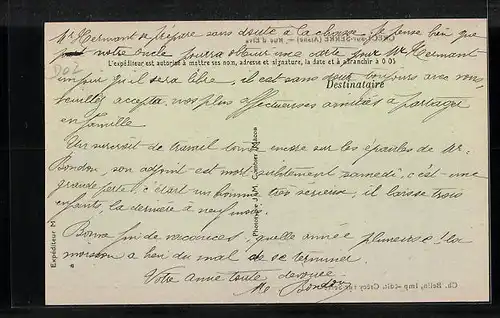 Mr Hermant se prépare sans doute à la chasse. Je pense bien que
notre oncle pourra obtenir une carte pour Mr Hermant
L'expéditeur est autorisé à mettre ses nom, adresse et signature, la date et à affranchir à 0 05
002
qu'il sera libre, il est sans doute toujours avec vous,
Destinataire
veuillez accepter, nos plus affectueuses amitiés à partager
en famille
Un surcroit de travail tombe encore sur les épaules de Mr.
Bondon, son adjoint est mort subitement samedi, c'est une
grande perte, c'était un homme très sérieux, il laisse trois
enfants, la dernière à neuf mois.
Bonne fin de vacances, quelle année pluvieuse! la
moisson a bien du mal de se terminer
Votre amie toute dévouée
Me Bondon
Expéditeur M
Phototypie J.M. Cambier
(Aisne) — Rue d'
Ch. Belin, Imp.-édit. Crécy-sur-Serre